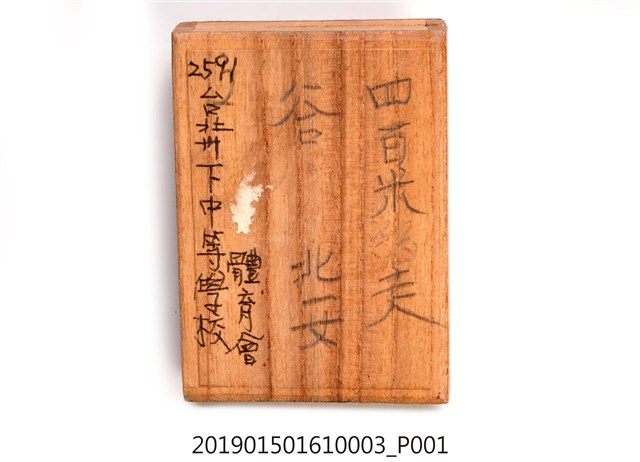 四百米走
谷 北一女
2591
台北州下中等學校
體育會
201901501610003_P001